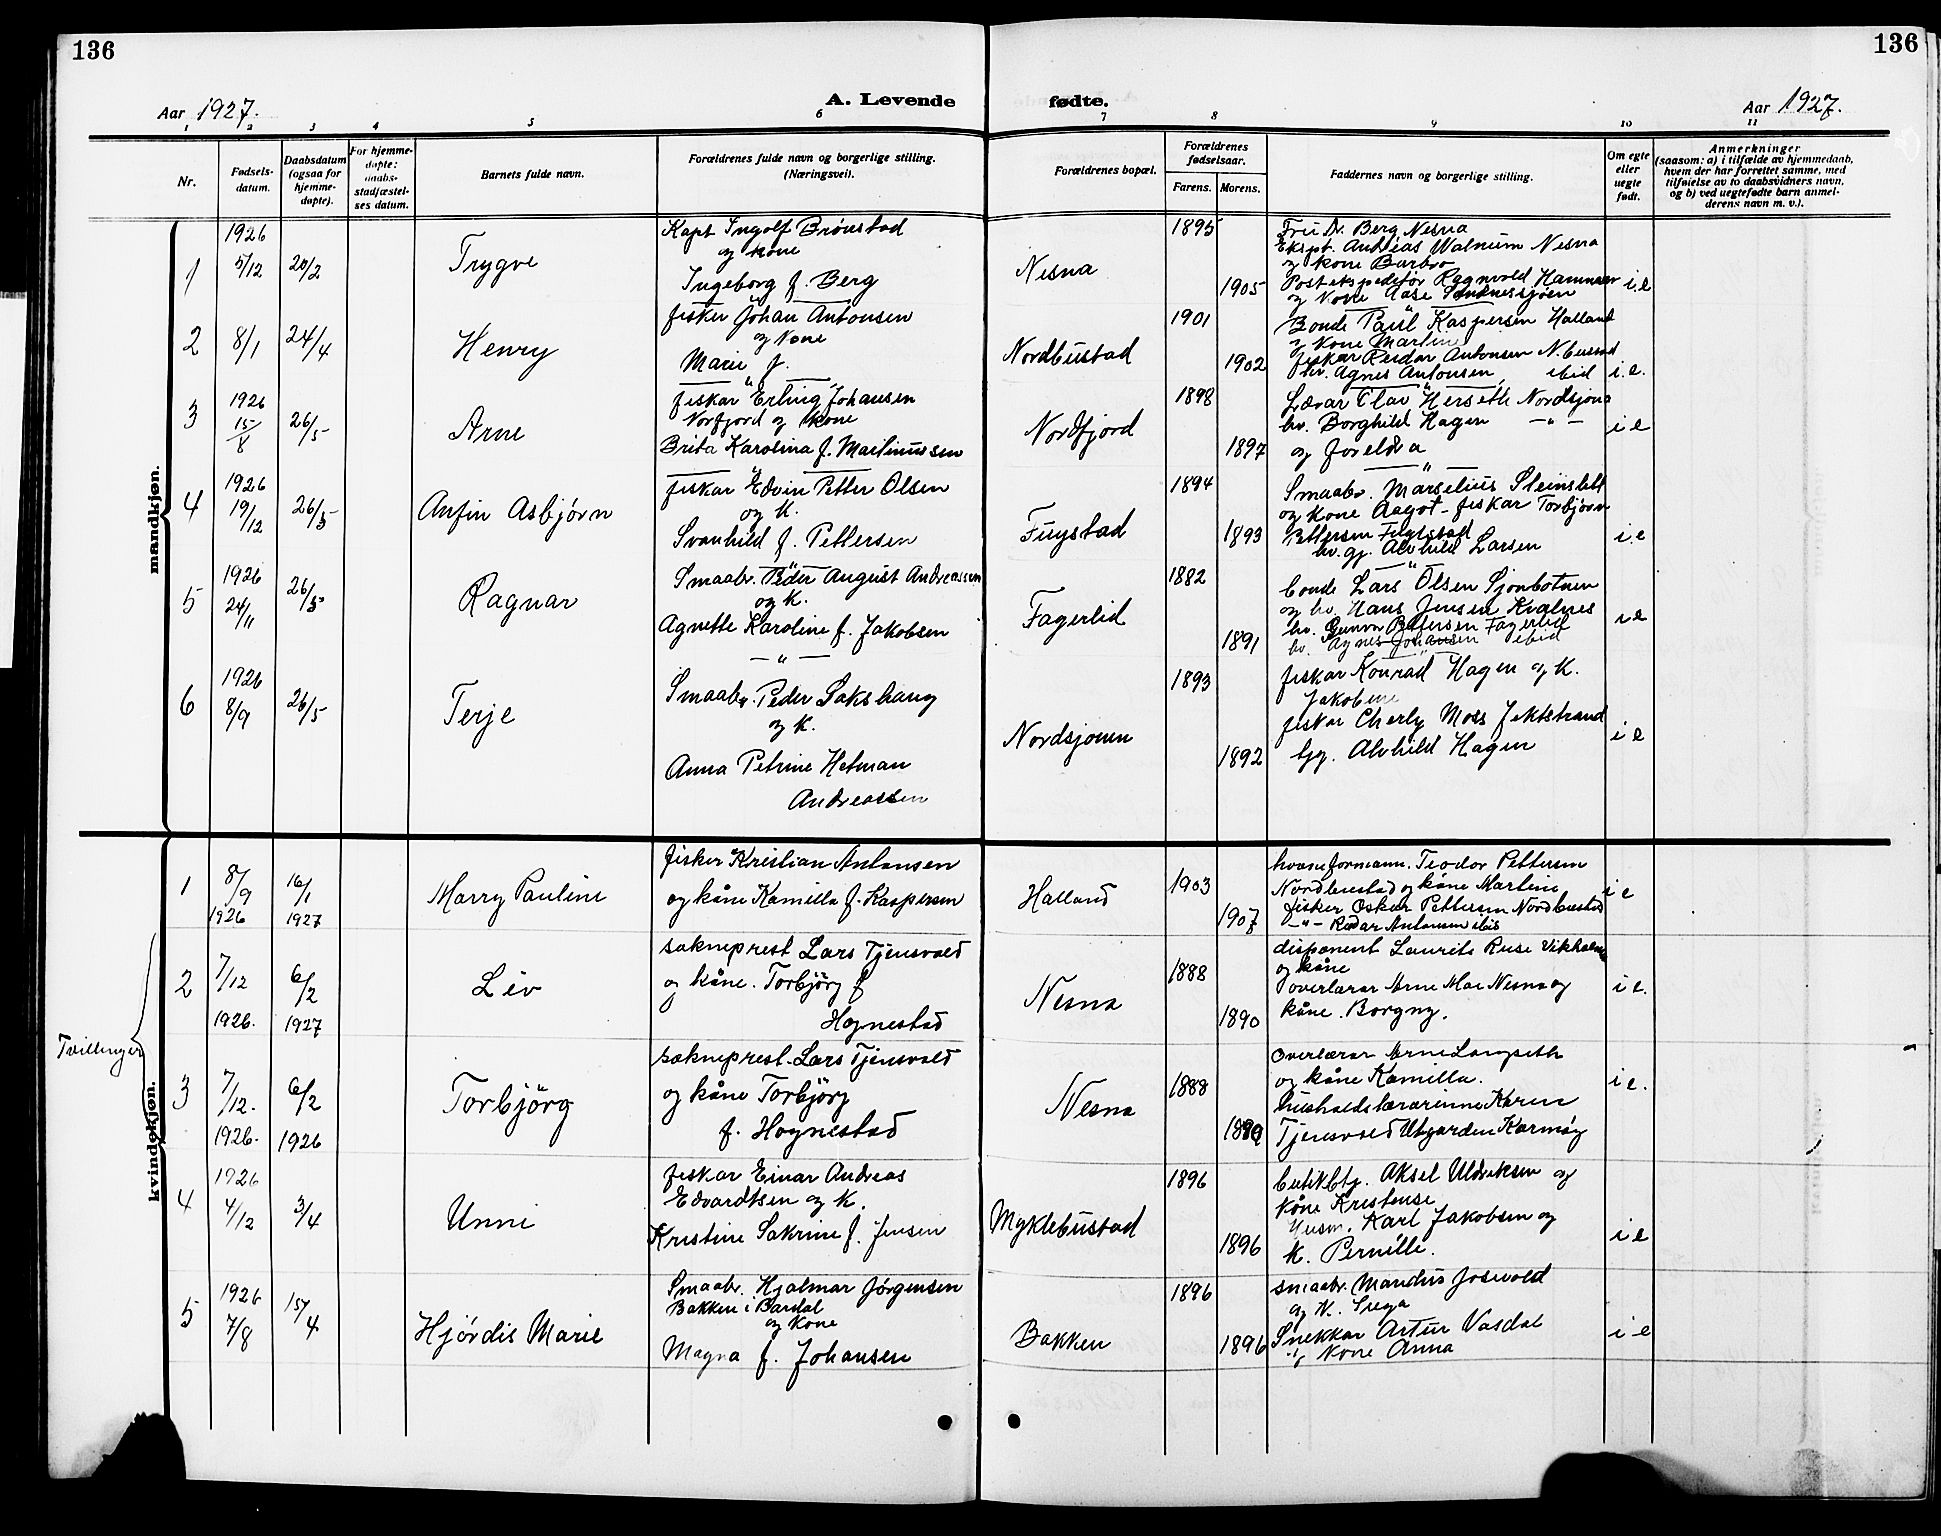 136
136
Aar 1927.
A. Levende fødte.
Aar 1927.
1 2 3 4 5 6 7 8 9 10 11
Nr.
Fødsels-
datum.
Daabsdatum
(ogsaa for
hjemme-
døpte).
For hjemme-
døpte:
daabs-
stadfæstel-
ses datum.
Barnets fulde navn.
Forældrenes fulde navn og borgerlige stilling.
(Næringsvei).
Forældrenes bopæl.
Forældrenes
fødselsaar.
Farens. Morens.
Faddernes navn og borgerlige stilling.
Om egte
eller
uegte
født.
Anmerkninger
(saasom: a) i tilfælde av hjemmedaab,
hvem der har forrettet samme, med
tilføielse av to daabsvidners navn,
og b) ved uegtefødte barn anmel-
derens navn m. v.).
mandkjøn.
1
1926
5/12
20/2
Trygve
Kapt Ingolf Brönstad
og kone
Ingeborg f. Berg
Nesna
1895
1905
Fru Dr. Berg Nesna
Eksp. Andreas Walnum Nesna
og kone Barbro
Postekspeditör Ragnvald Hammer
og kone Aase Sandnessjöen
i.e
2
8/1
24/4
Henry
fisker Johan Antonsen
og kone
Marie f.
Nordbustad
1901
1902
Bonde Paul Kaspersen Halland
og kone Martine
fiskar Reidar Antonsen N.bustad
hv. Agnes Antonsen ibid
i.e.
3
1926
15/8
26/5
Arne
fiskar Erling Johansen
Norfjord og kone
Brita Karolina f. Martinussen
Nordfjord
1898
1897
Lærar Olav Herseth Nordsjona
hv. Borghild Hagen — " —
og foreldra
i e
4
1926
19/12
26/5
Anfin Asbjørn
fiskar Edvin Petter Olsen
og k.
Svanhild f. Pettersen
Fuystad
1894
1893
Smaabr. Marselius Steinslett
og kone Aagot - fiskar Torbjörn
Pettersen
hv. gj. Alvhild Larsen
i.e
5
1926
24/11
26/5
Ragnar
Smaabr. Peder August Andreassen
og k.
Agnette Karoline f. Jakobsen
— " —
Fagerlid
1882
1891
bonde Lars Olsen Sjonbotnen
og hv. Hans Jensen Kvalnes
hv. Gunvor Pettersen Fagerlid
hv. Agnes Johansen ibid
i e
6
1926
8/9
26/5
Terje
Smaabr. Peder Sakshaug
og k.
Anna Petrine Hetman
Andreassen
Nordsjonen
1893
1892
fiskar Konrad Hagen og K.
Jakobine
fiskar Cherly Moss Jektstrand
tjg. Alvhild Hagen
i e
kvindekjøn.
1
8/9
1926
16/1
1927
Marry Pauline
fisker Kristian Antonsen
og kåne Kamilla f. Kaspersen
Halland
1903
1907
Teodor Pettersen
Nordbustad og kåne Martine
fisker Oskar Pettersen Nordbustad
— " — Reidar Antonsen ibid
i e
Tvillinger
2
7/12
1926.
6/2
1927
Liv
sokneprest Lars Tjensvold
og kåne. Torbjörg f
Hognestad
Nesna
1888
1890
disponent Laurits Ruse Vikholmen
og kåne
overlærar Arne Moe Nesna og
kåne. Borgny.
i e.
3
7/12.
1926.
6/2
1926
Torbjörg
sokneprest. Lars Tjensvold
og kåne Torbjörg
f. Hognestad
Nesna
1888
1890
overlærar Arne Langseth
og kåne Kamilla.
husholdslærarinne Karen
Tjensvold Utgarden Karmöy
i e.
4
1926
4/12
3/4
Unni
fiskar Einar Andreas
Edvardtsen og K.
Kristine Sakrine f. Jensen
Myklebustad
1896
1896
butikbtj. Aksel Uldriksen og
kåne Kristense
Husm. Karl Jakobsen og
K. Pernille.
i e
5
1926
7/8
15/4
Hjørdis Marie
Smaabr. Hjalmar Jørgensen
Bakken i Bardal
og kone
Magna f. Johansen
Bakken
1896
1896
smaabr. Mandus Josevold
og K.
Snekkar Artur Vasdal
og kone Anna
i e